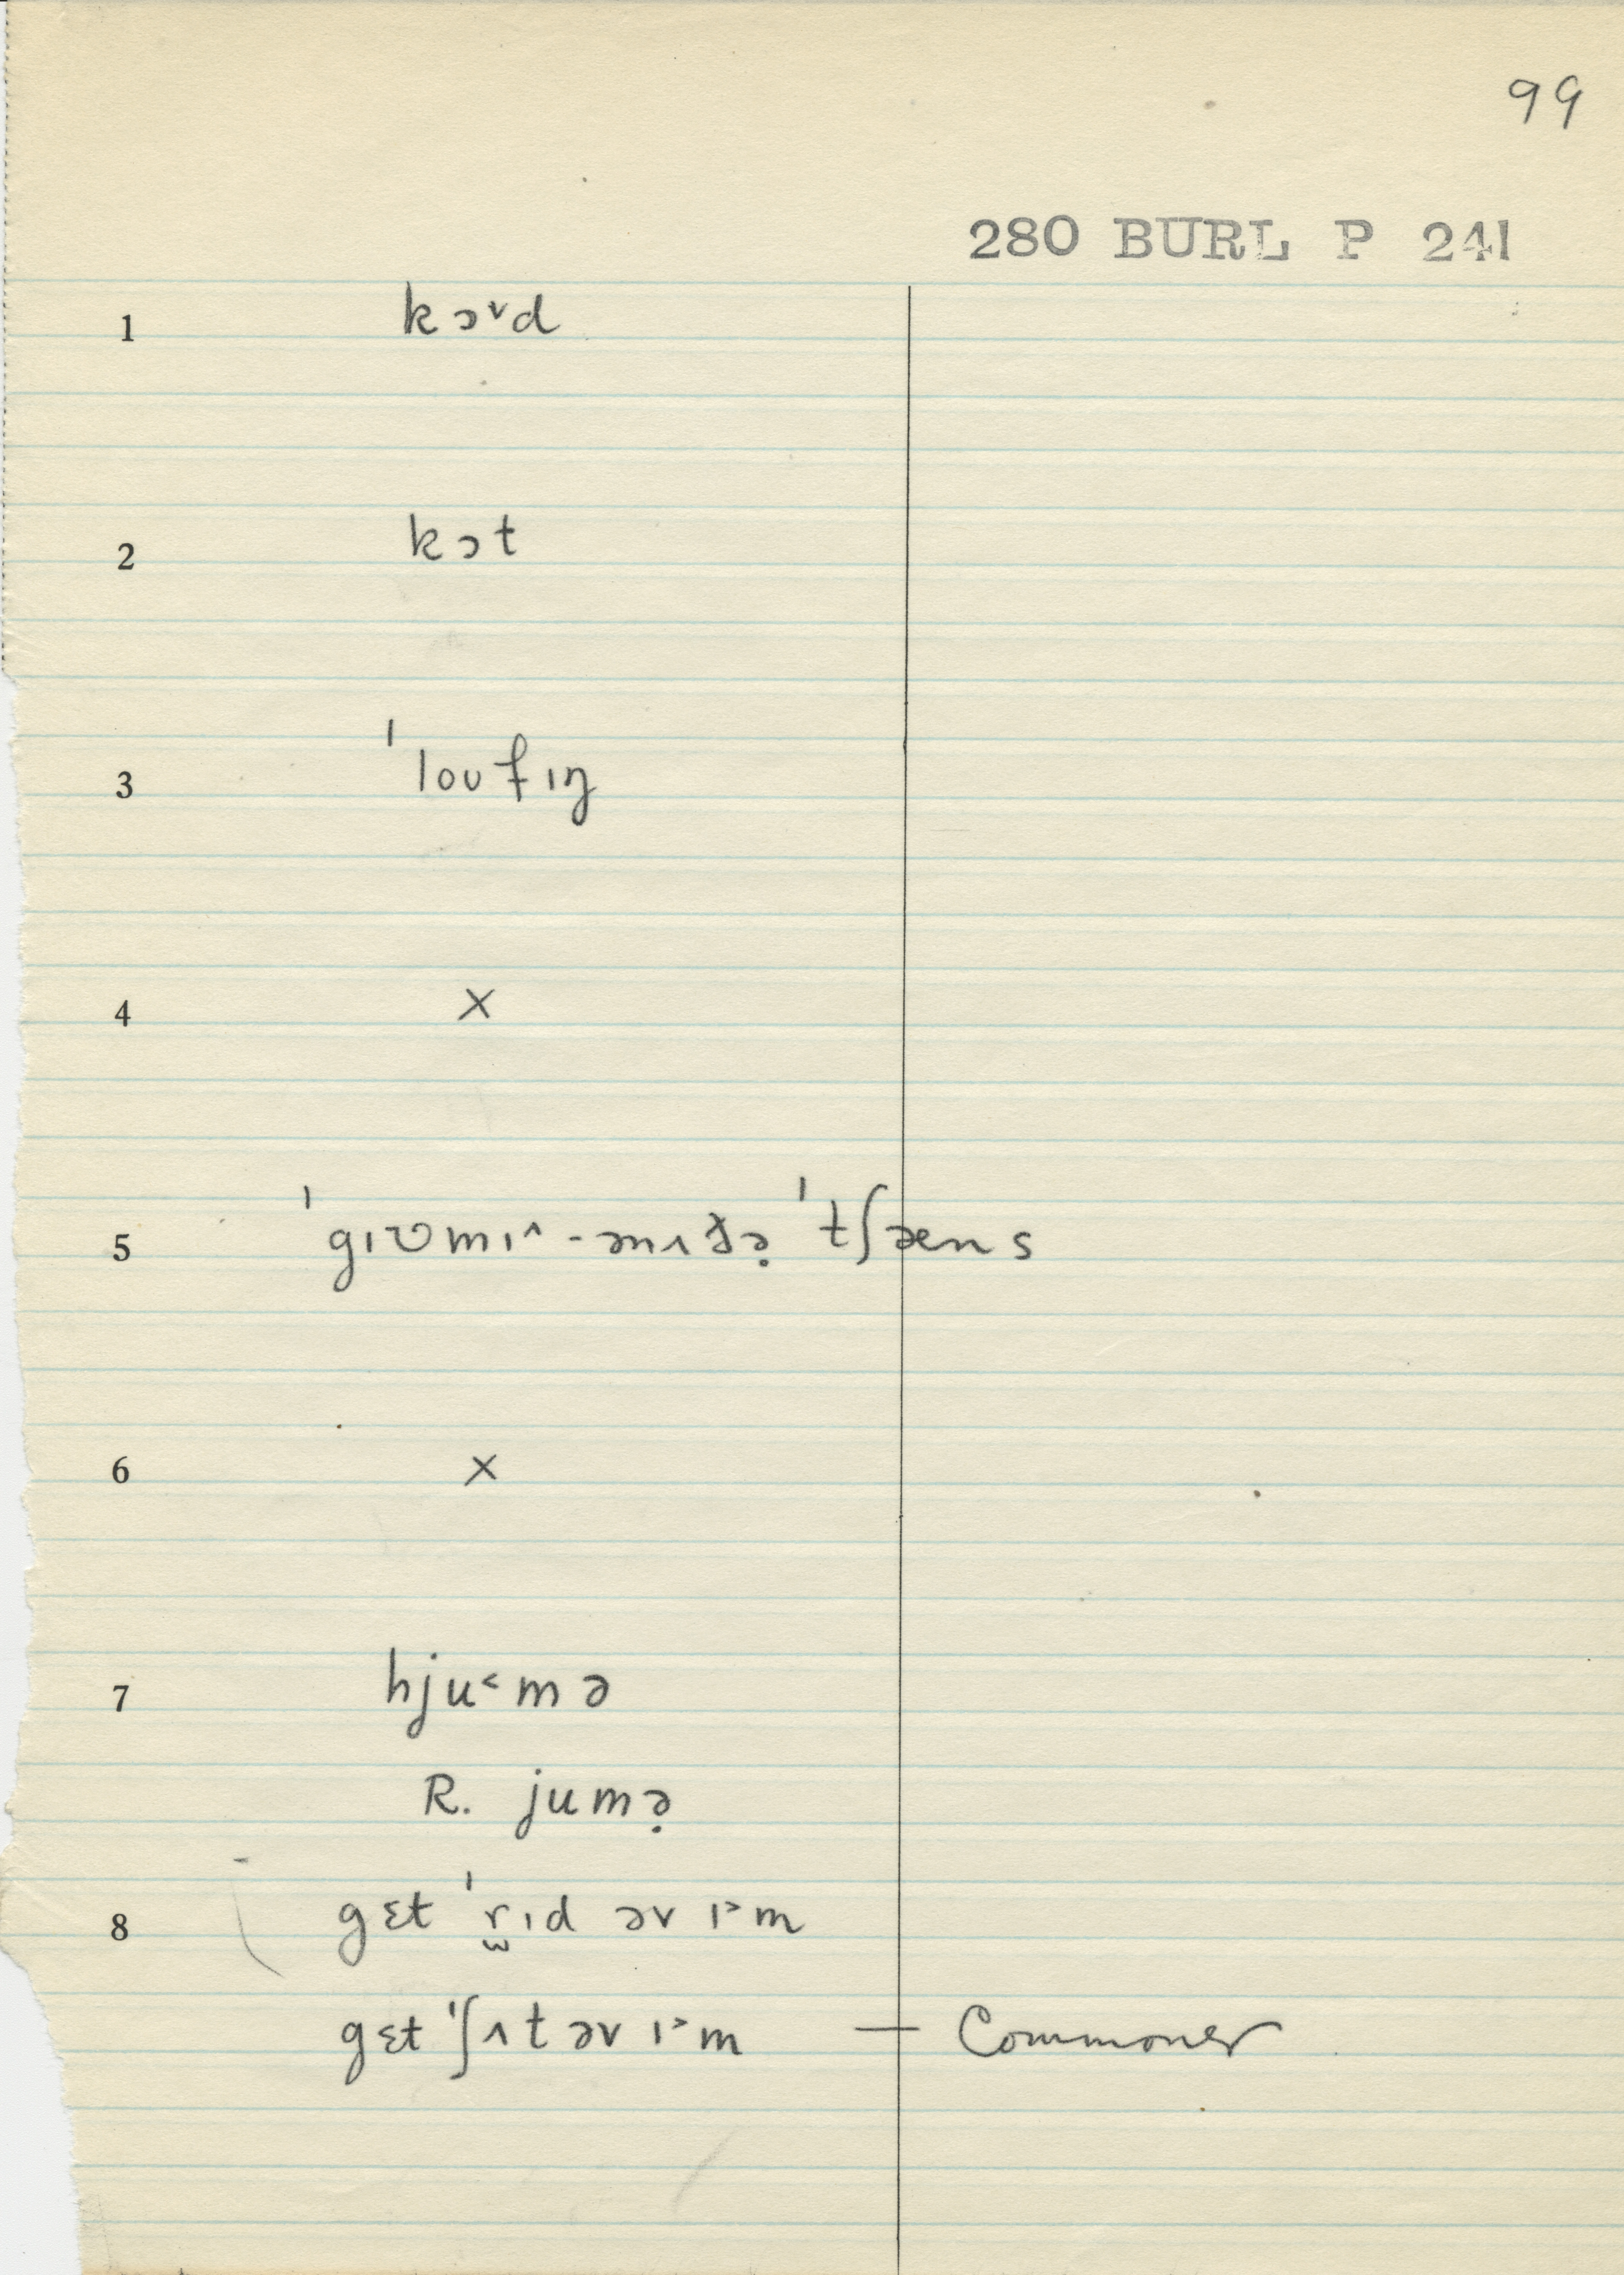 99
280 BURL P 241
1 kɔ˅d
2 kɔt
3 ˈloʊfɪŋ
4 ×
5 ˈgɪʊmɪ˄-ənʌðə̣ ˈtʃæns
6 ×
7 hju˂mə
R. jumə̣
8 gɛt ˈr̫ɪd əv ɪ˃m
gɛt ˈʃʌt əv ɪ˃m — Commoner